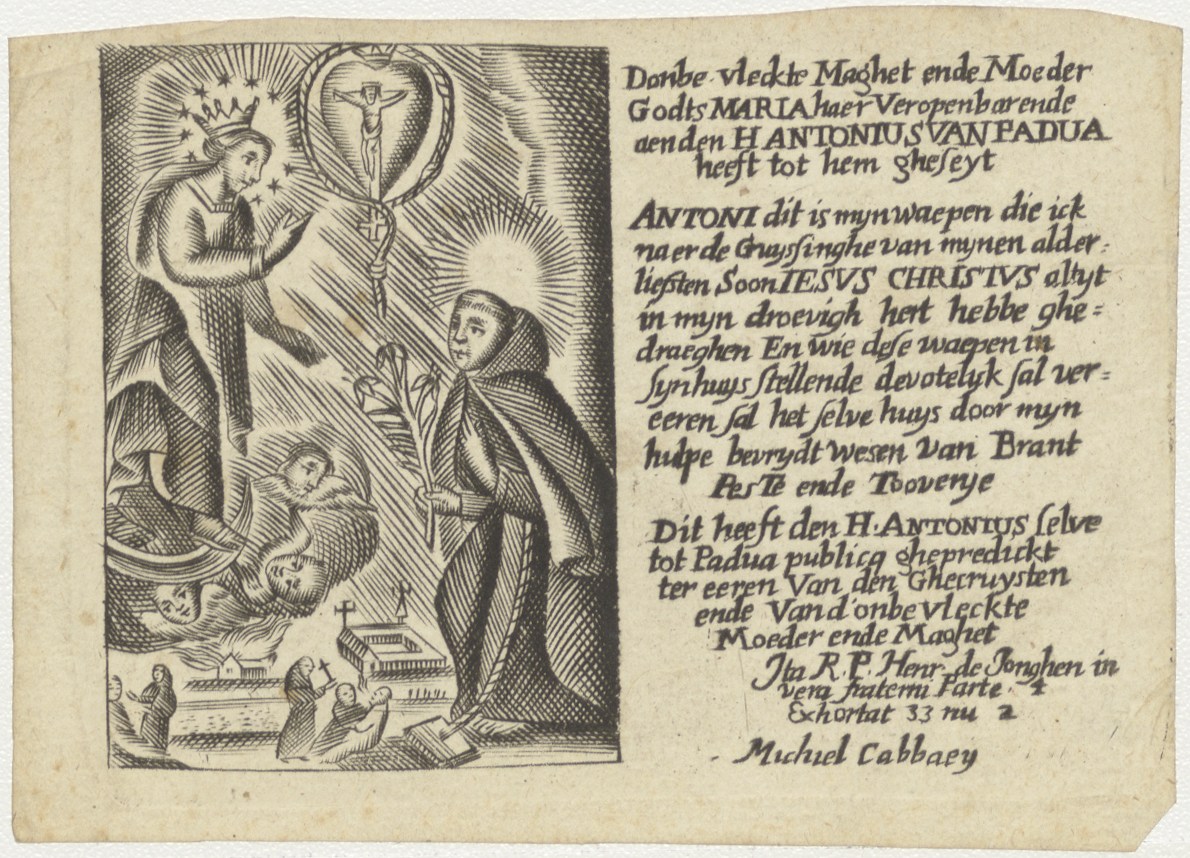 Donbe vleckte Maghet ende Moeder
Godts MARIA haer Veropenbarende
aenden H ANTONIUS VAN PADUA
heeft tot hem gheseyt
ANTONI dit is myn waepen die ick
naer de Cruyssinghe van mynen alder=
liefsten Soon IESVS CHRISTVS altyt
in myn droevigh hert hebbe ghe=
draeghen En wie dese waepen in
syn huys stellende devotelyck sal ver=
eeren sal het selve huys door myn
hulpe bevrydt wesen van Brant
PesTe ende Tooverye
Dit heeft den H. ANTONIUS selve
tot Padua publicq ghepredickt
ter eeren Van den Ghecruysten
ende Van d'onbevleckte
Moeder ende Maghet
Ita R. P. Henr. de Jonghen in
vera fraterni Parte. 4
Exhortat 33 nu 2
Michiel Cabbaey